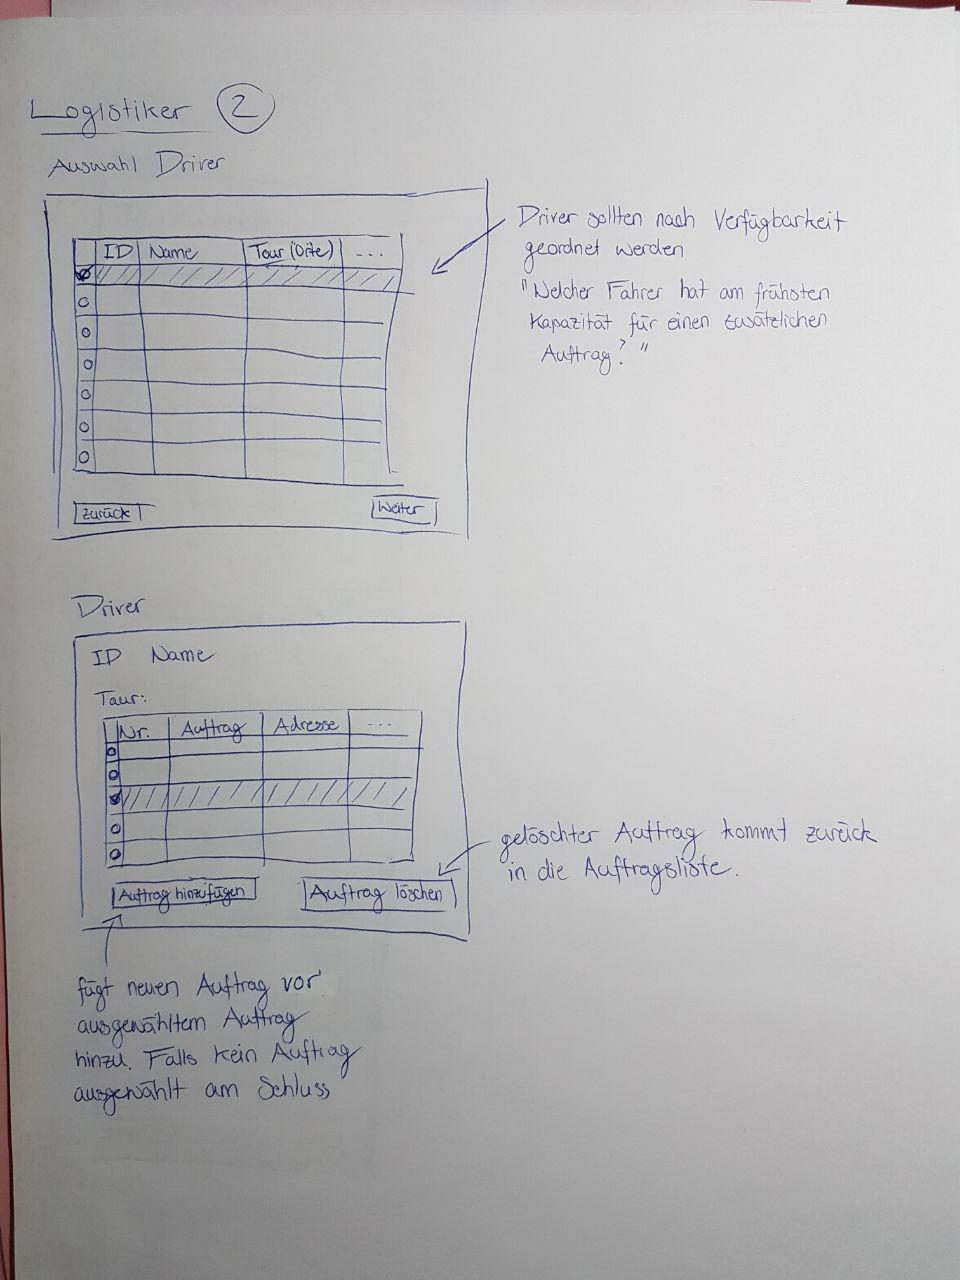 Logistiker 2
Auswahl Driver
ID Name Tour (Orte) ...
Zurück Weiter
Driver sollten nach Verfügbarkeit
geordnet werden
"Welcher Fahrer hat am frühsten
Kapazität für einen zusätzlichen
Auftrag?"
Driver
ID Name
Tour:
Nr. Auftrag Adresse ...
Auftrag hinzufügen Auftrag löschen
gelöschter Auftrag kommt zurück
in die Auftragsliste.
fügt neuen Auftrag vor
ausgewähltem Auftrag
hinzu. Falls kein Auftrag
ausgewählt am Schluss